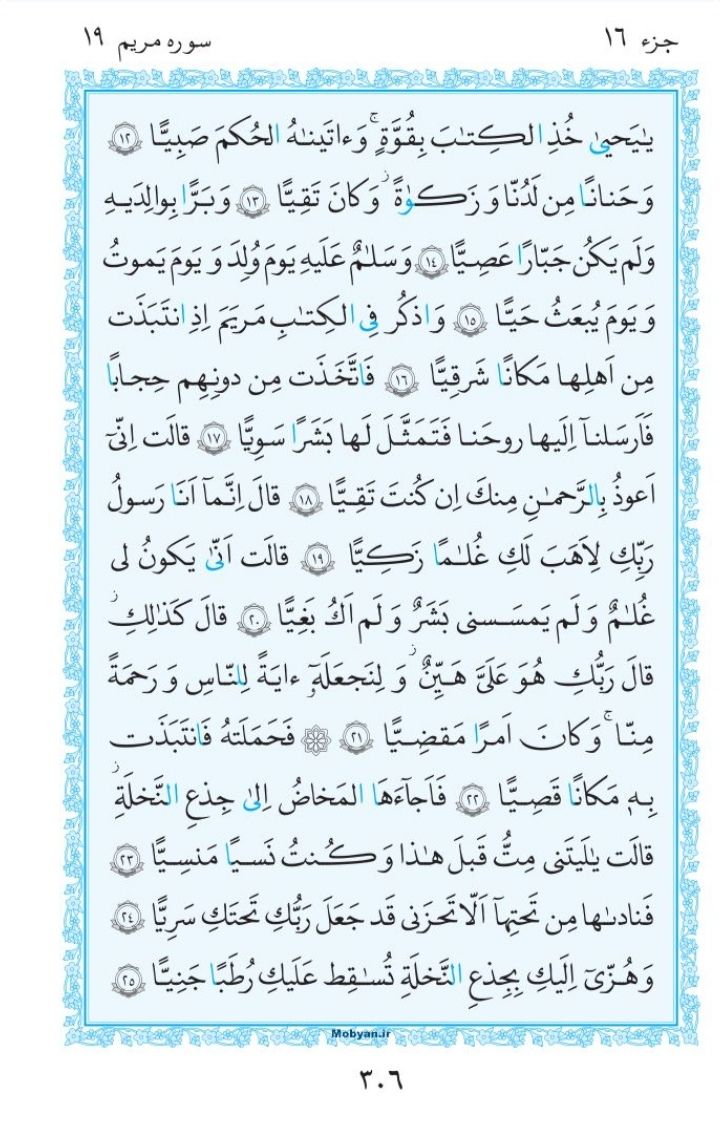 جزء ١٦
سوره مریم ١٩
يٰيَحيىٰ خُذِ الكِتٰبَ بِقُوَّةٍ ۚ وَءاتَينٰهُ الحُكمَ صَبِيًّا ﴿١٢﴾
وَحَنانًا مِن لَدُنّا وَ زَكوٰةً ۖ وَكانَ تَقِيًّا ﴿١٣﴾ وَبَرًّا بِوالِدَيهِ
وَلَم يَكُن جَبّارًا عَصِيًّا ﴿١٤﴾ وَسَلٰمٌ عَلَيهِ يَومَ وُلِدَ وَ يَومَ يَموتُ
وَ يَومَ يُبعَثُ حَيًّا ﴿١٥﴾ وَاذكُر فِی الكِتٰبِ مَريَمَ اِذِ انتَبَذَت
مِن اَهلِها مَكانًا شَرقِيًّا ﴿١٦﴾ فَاتَّخَذَت مِن دونِهِم حِجابًا
فَاَرسَلنآ اِلَيها روحَنا فَتَمَثَّلَ لَها بَشَرًا سَوِيًّا ﴿١٧﴾ قالَت اِنّیٓ
اَعوذُ بِالرَّحمٰنِ مِنكَ اِن كُنتَ تَقِيًّا ﴿١٨﴾ قالَ اِنَّمآ اَنَا رَسولُ
رَبِّكِ لِاَهَبَ لَكِ غُلٰمًا زَكِيًّا ﴿١٩﴾ قالَت اَنّىٰ يَكونُ لی
غُلٰمٌ وَ لَم يَمسَسنی بَشَرٌ وَ لَم اَكُ بَغِيًّا ﴿٢٠﴾ قالَ كَذٰلِكِ ۖ
قالَ رَبُّكِ هُوَ عَلَیَّ هَيِّنٌ ۖ وَ لِنَجعَلَهٗٓ ءايَةً لِلنّاسِ وَ رَحمَةً
مِنّا ۚ وَكانَ اَمرًا مَقضِيًّا ﴿٢١﴾ ۞ فَحَمَلَتهُ فَانتَبَذَت
بِهٖ مَكانًا قَصِيًّا ﴿٢٢﴾ فَاَجآءَهَا المَخاضُ اِلىٰ جِذعِ النَّخلَةِ ۖ
قالَت يٰلَيتَنی مِتُّ قَبلَ هٰذا وَ كُنتُ نَسيًا مَنسِيًّا ﴿٢٣﴾
فَنادىٰها مِن تَحتِهآ اَلّا تَحزَنی قَد جَعَلَ رَبُّكِ تَحتَكِ سَرِيًّا ﴿٢٤﴾
وَ هُزّیٓ اِلَيكِ بِجِذعِ النَّخلَةِ تُسٰقِط عَلَيكِ رُطَبًا جَنِيًّا ﴿٢٥﴾
Mobyan.ir
٣٠٦